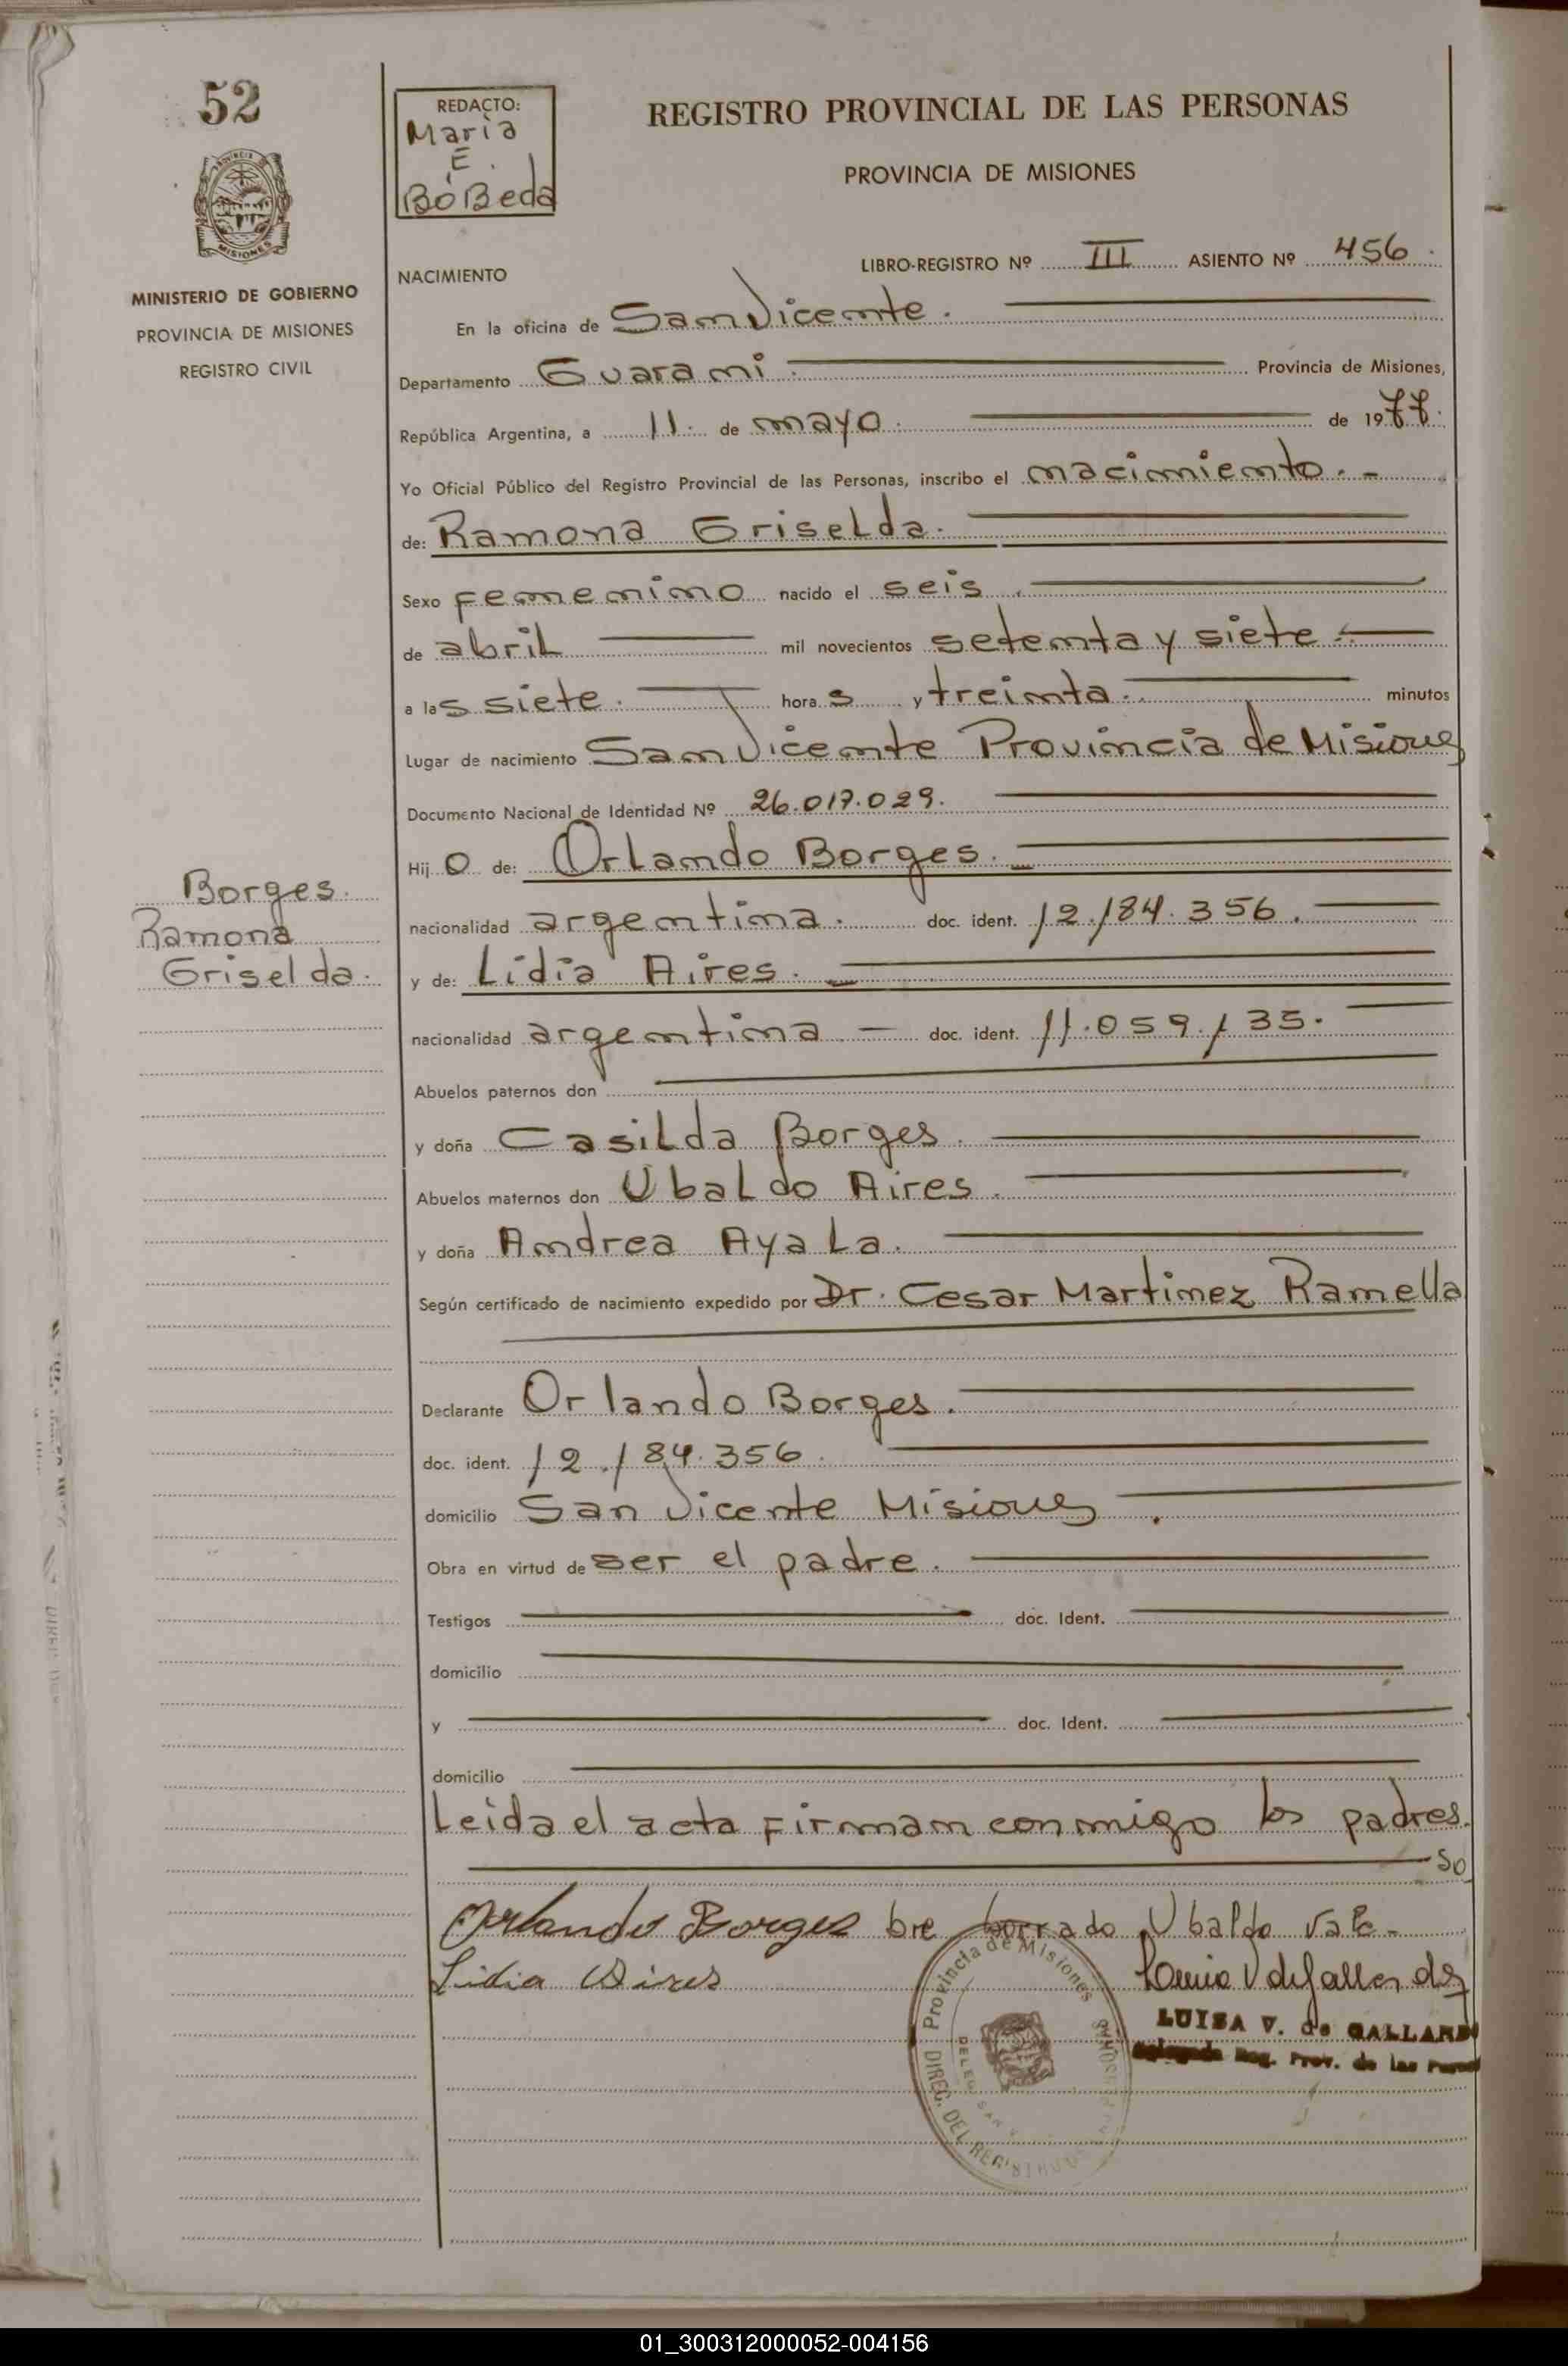 52
REDACTO:
Maria
E.
BóBeda
REGISTRO PROVINCIAL DE LAS PERSONAS
PROVINCIA DE MISIONES
MISIONES
MINISTERIO DE GOBIERNO
PROVINCIA DE MISIONES
REGISTRO CIVIL
NACIMIENTO
LIBRO-REGISTRO Nº III ASIENTO Nº 456.
En la oficina de San Vicente.
Departamento Guarani. Provincia de Misiones,
República Argentina, a 11. de mayo. de 1977.
Yo Oficial Público del Registro Provincial de las Personas, inscribo el nacimiento. -
de: Ramona Griselda.
Sexo femenino nacido el seis.
de abril mil novecientos setenta y siete.
a las siete. horas y treinta. minutos
Lugar de nacimiento San Vicente Provincia de Misiones
Documento Nacional de Identidad Nº 26.017.029.
Hijo de: Orlando Borges.
Borges.
Ramona
Griselda.
nacionalidad argentina. doc. ident. 12.184.356.
y de: Lidia Aires.
nacionalidad argentina — doc. ident. 11.059.135.
Abuelos paternos don
y doña Casilda Borges.
Abuelos maternos don Ubaldo Aires.
y doña Andrea Ayala.
Según certificado de nacimiento expedido por Dr. Cesar Martinez Ramella
Declarante Orlando Borges.
doc. ident. 12.184.356.
domicilio San Vicente Misiones.
Obra en virtud de ser el padre.
Testigos doc. Ident.
domicilio
y doc. Ident.
domicilio
Leida el acta firman conmigo los padres.
So
Orlando Borges bre borrado Ubaldo vale-
Lidia Aires
Provincia de Misiones
DIREC. DEL REGISTRO
LUISA V. de GALLARD
Delegada Reg. Prov. de las Person
01_300312000052-004156